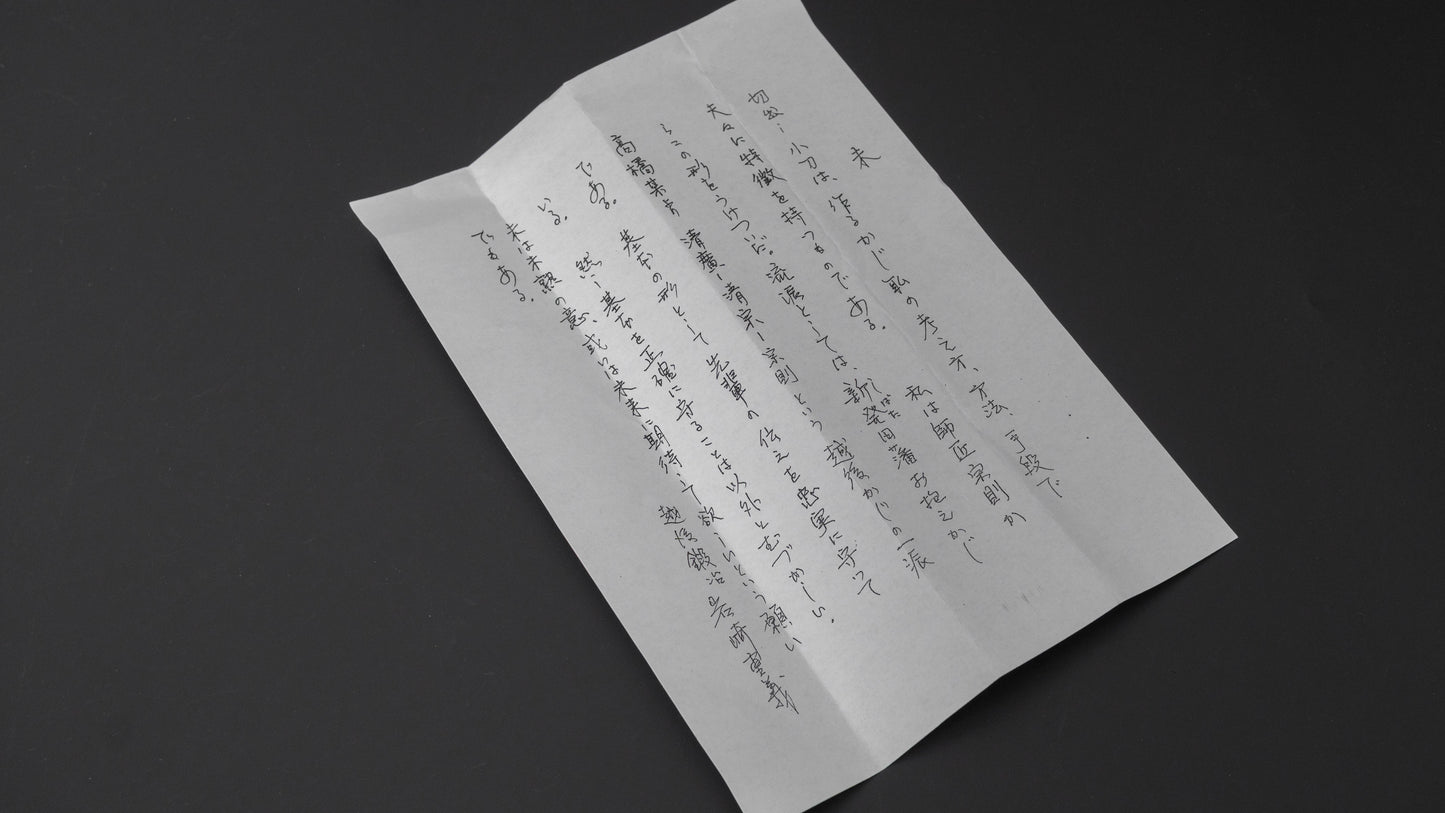 未
切出し小刀は、作るかじ私の考え方、方法、手段で
夫々に特徴を持つものである。 私は師匠宗則か
らこの形をうけついだ。流派としては、新発田藩お抱えかじ
しばた
高橋某 清廣ー清宗ー宗則という越後かじの一派
である。 基本の形として先輩の伝えを忠実に守って
いる。 然し基本を正確に守ることは以外とむづかしい。
未は未熟の意、或いは未来に期待して欲しいという願い
でもある。
越後鍛冶岩崎重義